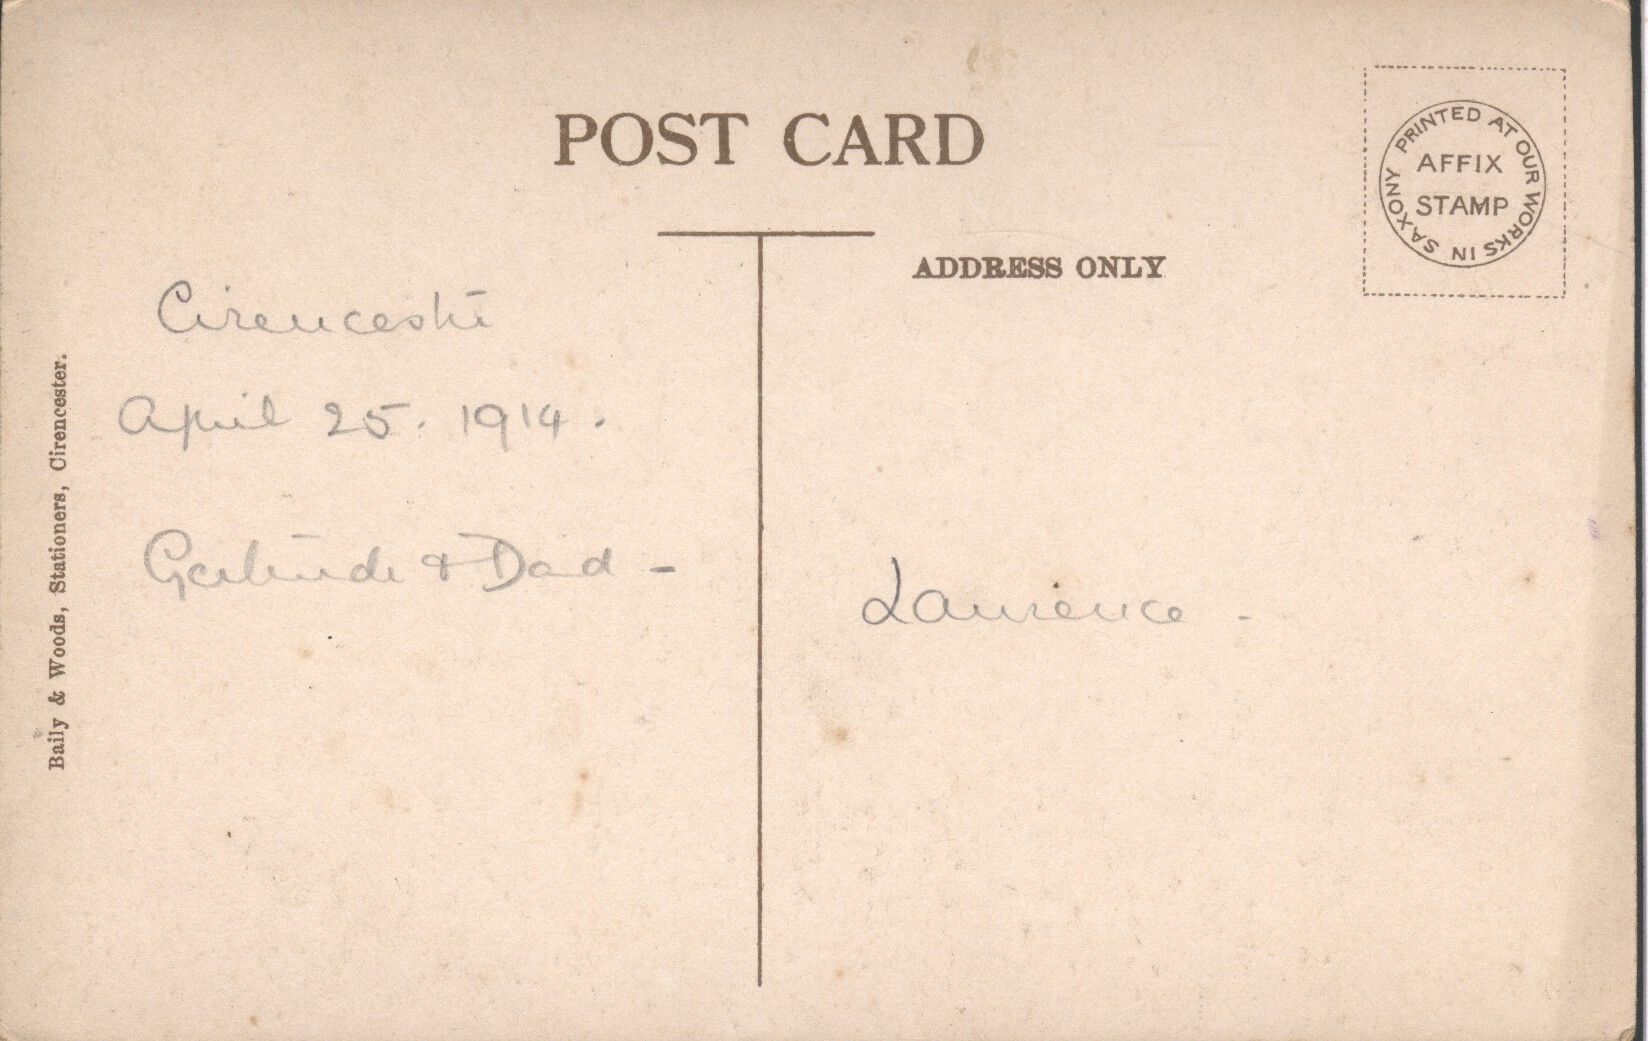 POST CARD
PRINTED AT OUR WORKS IN SAXONY
AFFIX
STAMP
ADDRESS ONLY
Cirencester
April 25. 1914.
Gertrude & Dad -
Laurence -
Baily & Woods, Stationers, Cirencester.